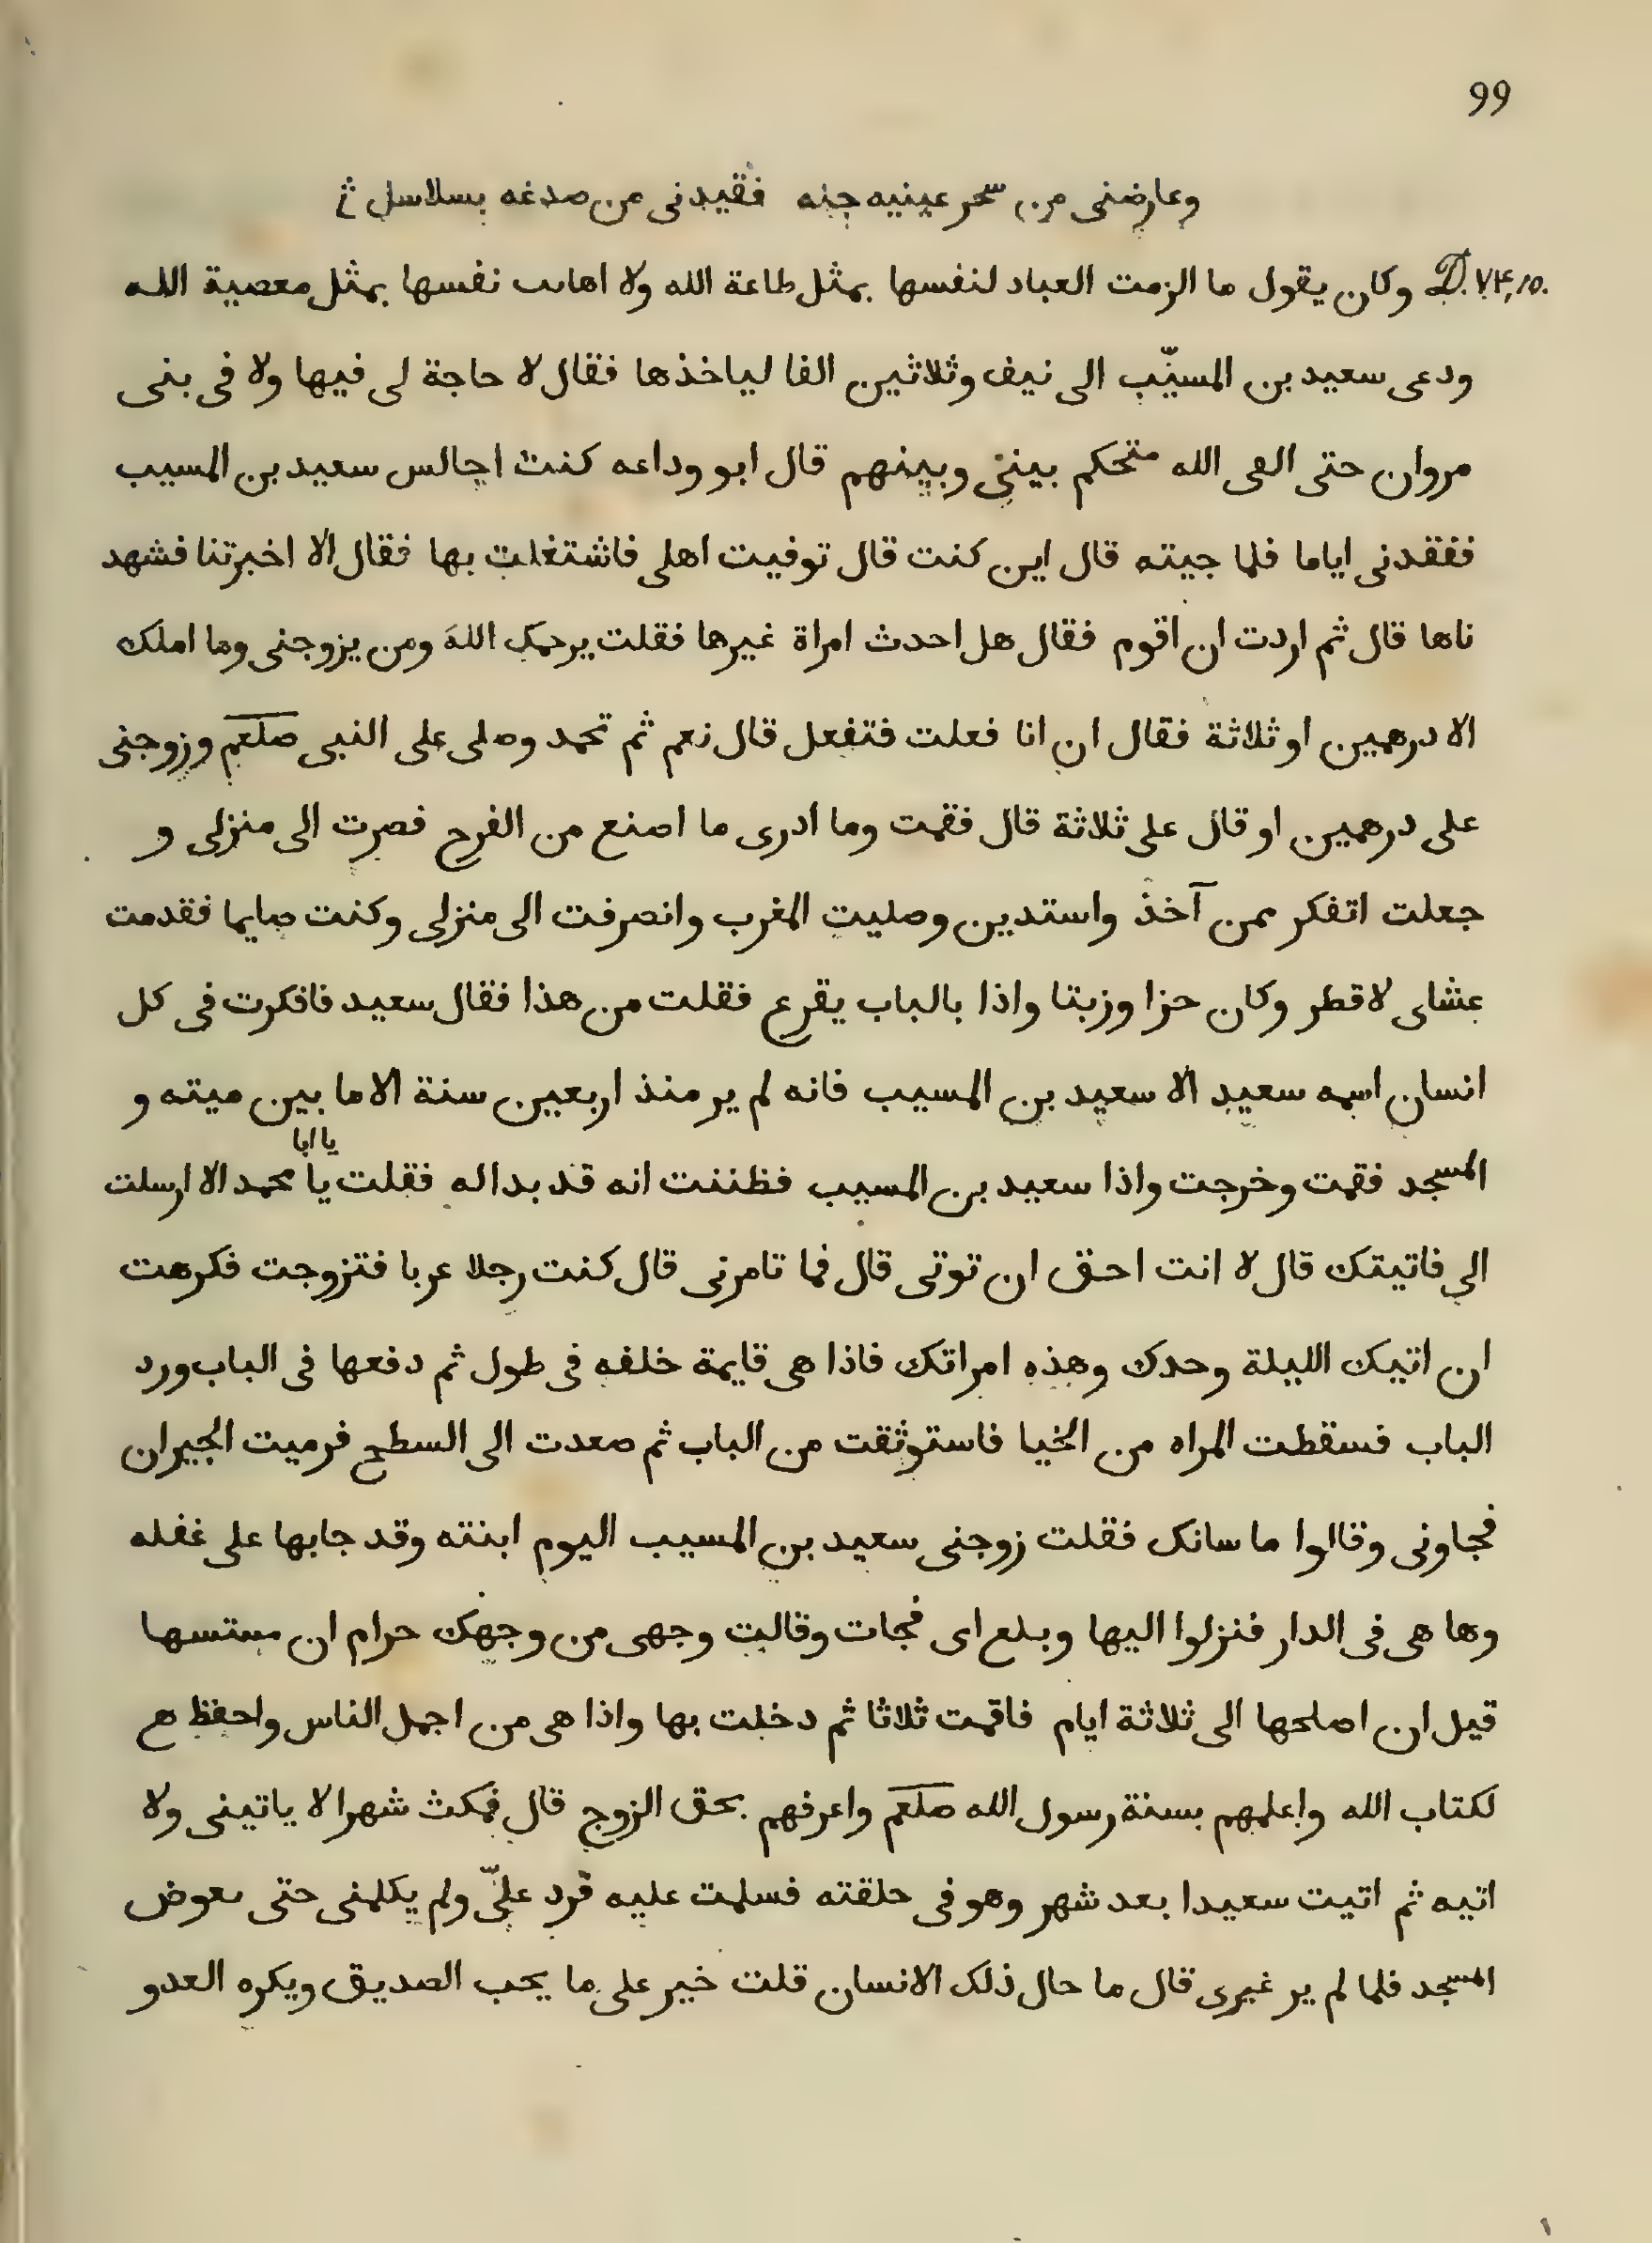 99
وعارضنى من سحر عينيه جنه فقيدنى من صدغه بسلاسل
D. ٧٢٤,١٥. وكان يقول ما الزمت العباد لنفسها بمثل طاعة الله ولا اهانت نفسها بمثل معصية الله
ودعى سعيد بن المسيّب الى نيف وثلاثين الفا لياخذها فقال لا حاجة لى فيها ولا فى بنى
مروان حتى القى الله فتحكم بينى وبينهم قال ابو وداعه كنت اجالس سعيد بن المسيب
ففقدنى اياما فلما جيته قال اين كنت قال توفيت اهلى فاشتغلت بها فقال الا اخبرتنا فشهد
ناها قال ثم اردت ان اقوم فقال هل احدث امراة غيرها فقلت يرحمك الله ومن يزوجنى وما املك
الا درهمين او ثلاثة فقال ان انا فعلت فتفعل قال نعم ثم تحمد وصلى على النبى صلعم وزوجنى
على درهمين او قال على ثلاثة قال فقمت وما ادرى ما اصنع من الفرح فصرت الى منزلى و
جعلت اتفكر ممن آخذ واستدين وصليت المغرب وانصرفت الى منزلى وكنت صايما فقدمت
عشاى لافطر وكان خزا وزيتا واذا بالباب يقرع فقلت من هذا فقال سعيد فافكرت فى كل
انسان اسمه سعيد الا سعيد بن المسيب فانه لم ير منذ اربعين سنة الا ما بين ميته و
المسجد فقمت وخرجت واذا سعيد بن المسيب فظننت انه قد بدا له فقلت يا محمد الا ارسلت
يا ابا
الى فاتيتك قال لا انت احق ان توتى قال فما تامرنى قال كنت رجلا عربا فتزوجت فكرهت
ان اتيك الليلة وحدك وهذه امراتك فاذا هى قايمة خلفه فى طول ثم دفعها فى الباب ورد
الباب فسقطت المراه من الحيا فاستوثقت من الباب ثم صعدت الى السطح فرميت الجيران
فجاونى وقالوا ما سانك فقلت زوجنى سعيد بن المسيب اليوم ابنته وقد جابها على غفله
وها هى فى الدار فنزلوا اليها وبلع اى فجات وقالت وجهى من وجهك حرام ان مستسها
قيل ان اصلحها الى ثلاثة ايام فاقمت ثلاثا ثم دخلت بها واذا هى من اجمل الناس واحفظ هم
لكتاب الله واعلمهم بسنة رسول الله صلعم واعرفهم بحق الزوج قال فمكث شهرا لا ياتينى ولا
اتيه ثم اتيت سعيدا بعد شهر وهو فى حلقته فسلمت عليه فرد علىّ ولم يكلمنى حتى تعوض
المسجد فلما لم ير غيرى قال ما حال ذلك الانسان قلت خير على ما يحب الصديق ويكره العدو